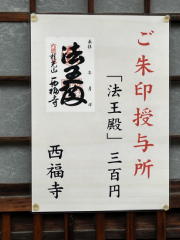 ご朱印授与所
「法王殿」三百円
西福寺
法王殿
西福寺